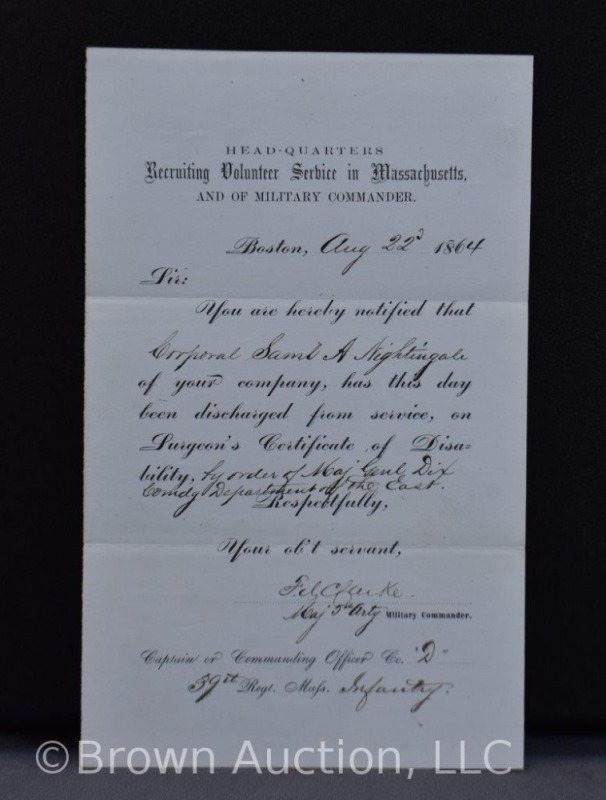 HEAD-QUARTERS
Recruiting Volunteer Service in Massachusetts,
AND OF MILITARY COMMANDER.
Boston, Aug 22d 1864
Sir:
You are hereby notified that
Corporal Saml A Nightingale
of your company, has this day
been discharged from service, on
Surgeon's Certificate of Disa-
bility, by order of Maj Genl Dix
Comdg Department of the East.
Respectfully,
Your ob't servant,
Clarke
Maj Arty Military Commander.
Captain or Commanding Officer Co. "D"
39th Regt. Mass. Infantry.
©Brown Auction, LLC